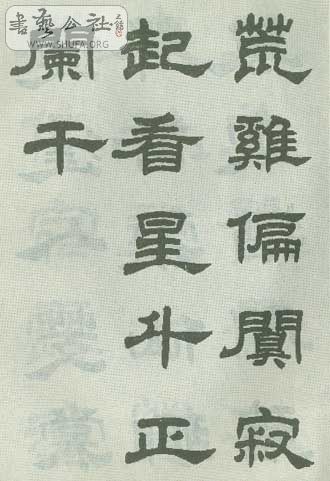 荒雞偏闃寂
起看星斗正
闌干
書藝公社
WWW.SHUFA.ORG